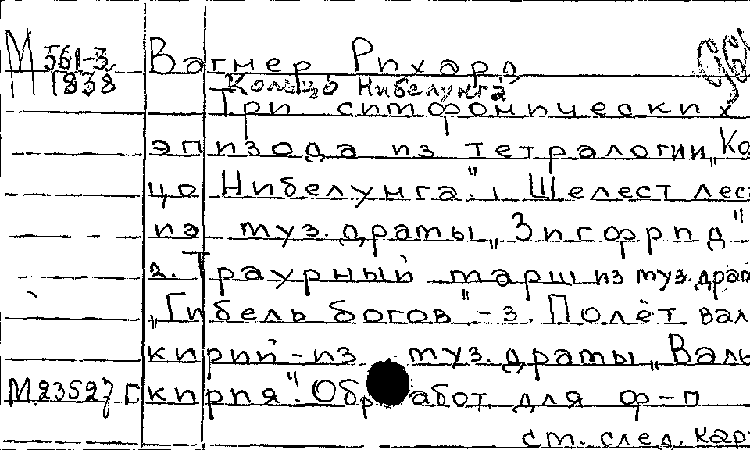 М 561-3 Вагнер Рихард
1838 Кольцо Нибелунга
Три симфонических
эпизода из тетралогии „Ко
цо Нибелунга". 1 Шелест лес
из муз. драмы „Зигфрид"
2. Траурный марш из муз. драм
„Гибель богов" - 3. Полёт вал
кирий - из муз. драмы „Валь
М.23527 г кирия". Обработ. для ф-п
ст. след. кар